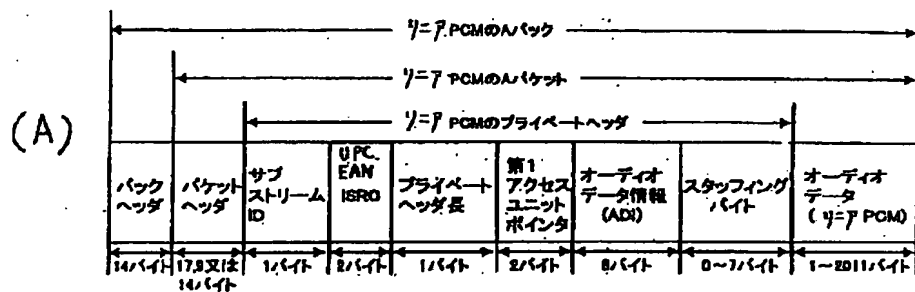 リニア PCMのAパック
リニア PCMのAパケット
リニア PCMのプライベートヘッダ
(A)
パック
ヘッダ
パケット
ヘッダ
サブ
ストリーム
ID
UPC.
EAN
ISRC
プライベート
ヘッダ長
第1
アクセス
ユニット
ポインタ
オーディオ
データ情報
(ADI)
スタッフィング
バイト
オーディオ
データ
(リニア PCM)
14バイト
17,9又は
14バイト
1バイト
2バイト
1バイト
2バイト
8バイト
0～7バイト
1～2011バイト